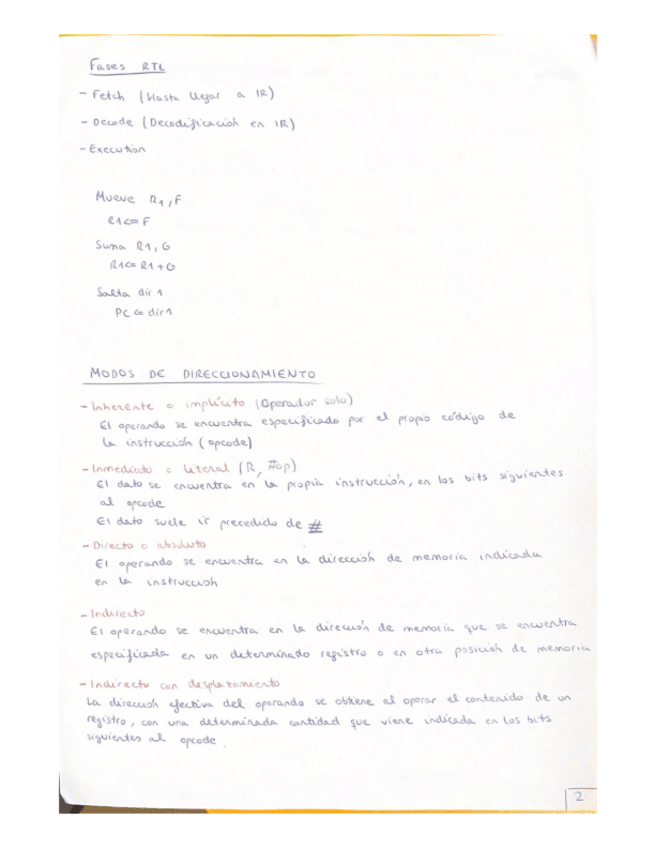 Fases RTL
- Fetch (Hasta llegar a IR)
- Decode (Decodificación en IR)
- Execution
Mueve R1, F
R1 <= F
Suma R1, G
R1 <= R1 + G
Salta dir 1
PC <= dir 1
MODOS DE DIRECCIONAMIENTO
- Inherente o implícito (Operador solo)
El operando se encuentra especificado por el propio código de
la instrucción (opcode)
- Inmediato o literal (R, #op)
El dato se encuentra en la propia instrucción, en los bits siguientes
al opcode
El dato suele ir precedido de #
- Directo o absoluto
El operando se encuentra en la dirección de memoria indicada
en la instrucción
- Indirecto
El operando se encuentra en la direción de memoria que se encuentra
especificada en un determinado registro o en otra posición de memoria
- Indirecto con desplazamiento
La dirección efectiva del operando se obtiene al operar el contenido de un
registro, con una determinada cantidad que viene indicada en los bits
siguientes al opcode.
2